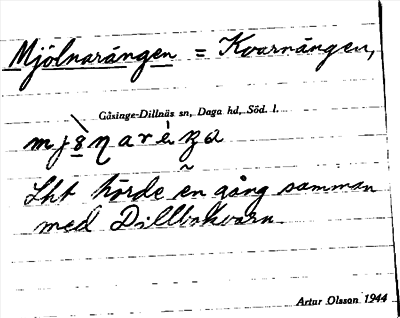 Mjölnarängen = Kvarnängen,
Gåsinge-Dillnäs sn, Daga hd, Söd. l.
Lht hörde en gång samman
med Dillbokvarn
Artur Olsson 1944